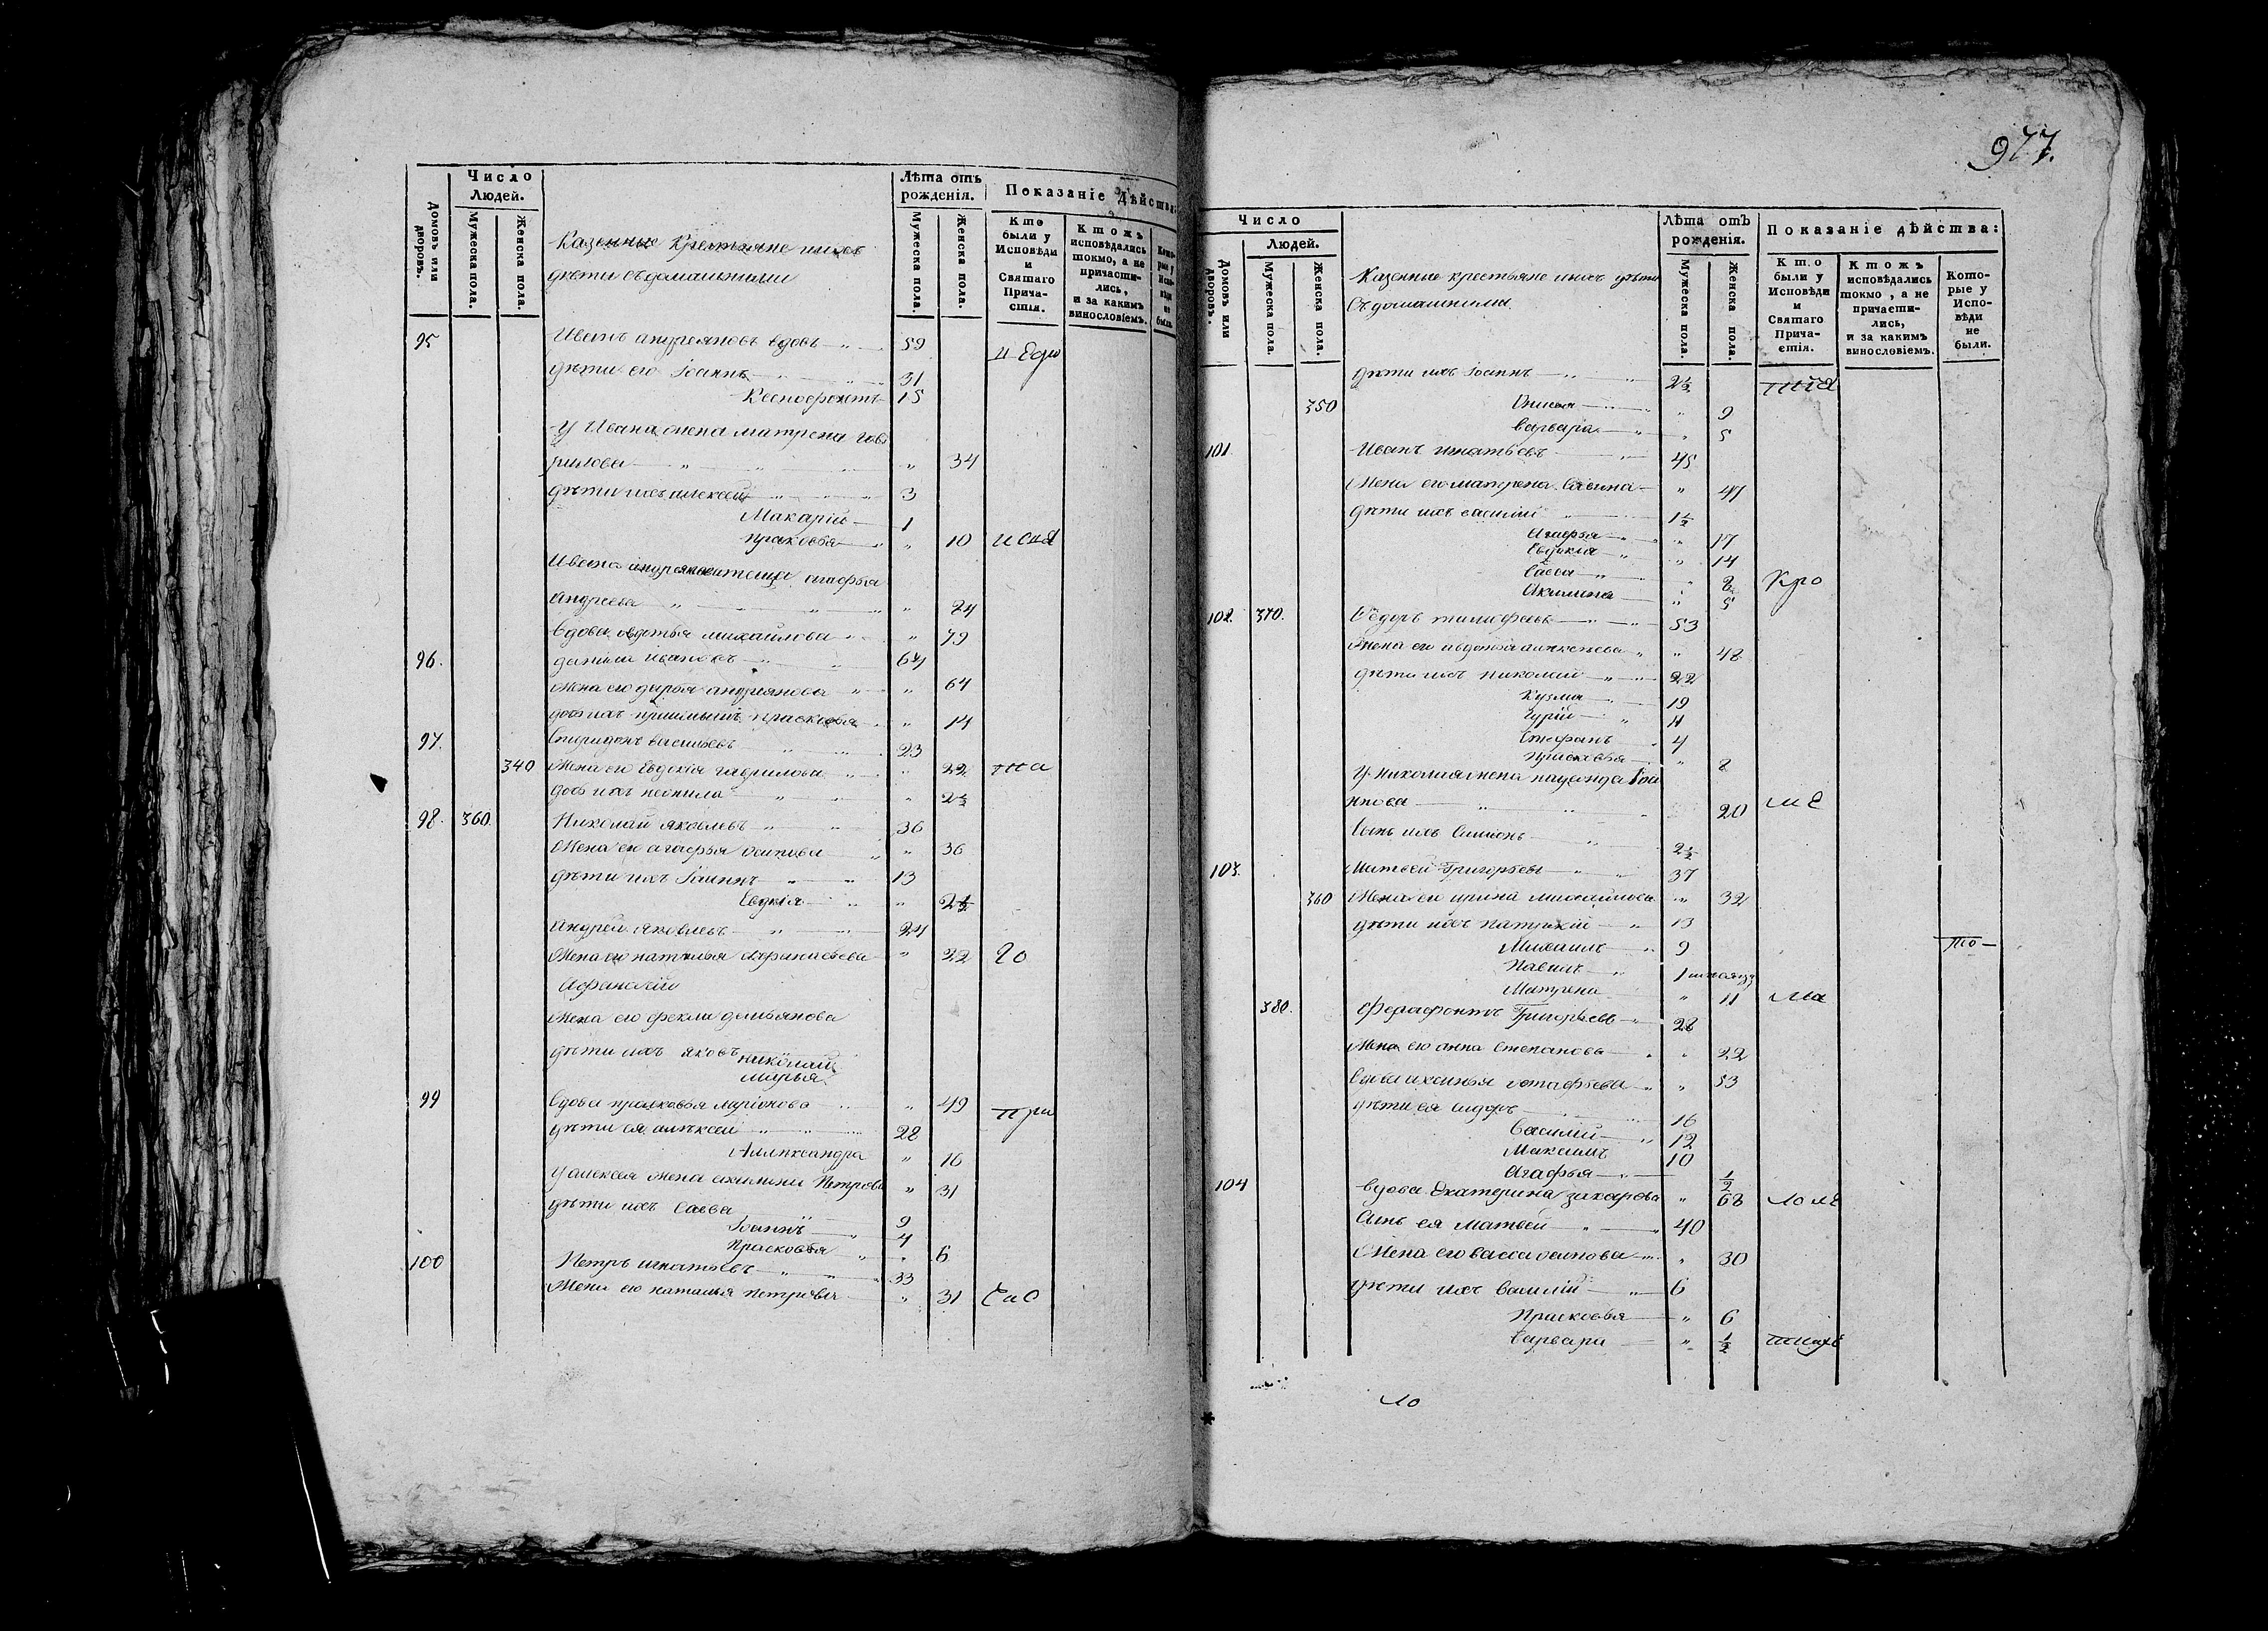 Число
Людей.
Лѣта отъ
рожденія.
Показаніе дѣйства:
Домовъ или дворовъ.
Мужеска пола.
Женска пола.
Мужеска пола.
Женска пола.
Кто были у Исповѣди и Святаго Причастія.
Ктожъ исповѣдались токмо, а не причастились, и за какимъ винословіемъ.
Которые у Исповѣди не были.
Казенные Крестьяне
дѣти съ домашними
95 вдовъ 59
дѣти его Іоаннъ 31
15
У Ивана жена матрена гав
рилова " 34
дѣти ихъ алексей 3
Макарій 1
прасковья " 10
агафья
андреева " 24
вдова авдотья михайлова " 79
96. данила ивановъ 64
жена его дарья андреянова " 64
прасковья " 14
97. Спиридонъ васильевъ 23
340 жена его Евдокія гаврилова " 22
неонила " 2½
98. 360. Николай яковлевъ 36
жена его агафья осипова " 36
дѣти ихъ Іоаннъ 13
Евдокія " 2½
андрей яковлевъ 24
жена его наталья афанасьева " 22
Афанасій
жена его фекла демьянова
дѣти ихъ яковъ николай
марья
99 вдова прасковья ларіонова " 49
дѣти ея алексей 28
Александра " 16
у алексея жена акилина Петрова " 31
дѣти ихъ Савва 9
Іоаннъ 4
Прасковья " 6
100 Петръ игнатьевъ 33
Жена его наталья петрова " 31
977.
Число
Людей.
Лѣта отъ
рожденія.
Показаніе дѣйства:
Домовъ или дворовъ.
Мужеска пола.
Женска пола.
Мужеска пола.
Женска пола.
Кто были у Исповѣди и Святаго Причастія.
Ктожъ исповѣдались токмо, а не причастились, и за какимъ винословіемъ.
Которые у Исповѣди не были.
Казенные крестьяне ихъ дѣти
Съ домашними
дѣти ихъ Іоаннъ 2½
350 " 9
варвара " 5
101 Иванъ игнатьевъ 45
Жена его матрена Савина " 47
дѣти ихъ василій 1½
Агафья " 17
Евдокія " 14
Савва " 8
Акилина " 5
102. 370. Ѳедоръ 53
Жена его авдотья алексеева " 48
дѣти ихъ николай 22
Кузма 19
Гурій 11
Стефанъ 4
Прасковья " 8
У николая жена Іоа
ннова 20
Сынъ ихъ Симионъ 2½
103. Матвей Григорьевъ 37
360 Жена его ирина михайлова " 32
дѣти ихъ 13
Михаилъ 9
Павелъ 1
Матрена " 11
380. Ферафонтъ Григорьевъ 28
Жена его анна Степанова " 22
вдова аксинья " 53
дѣти ея сидоръ 16
Василий 12
Максимъ 10
Агафья ½
104 вдова Екатерина захарова " 68
Сынъ ея матвей 40
Жена его васса осипова " 30
дѣти ихъ василій 6
Прасковья " 6
Варвара " ½